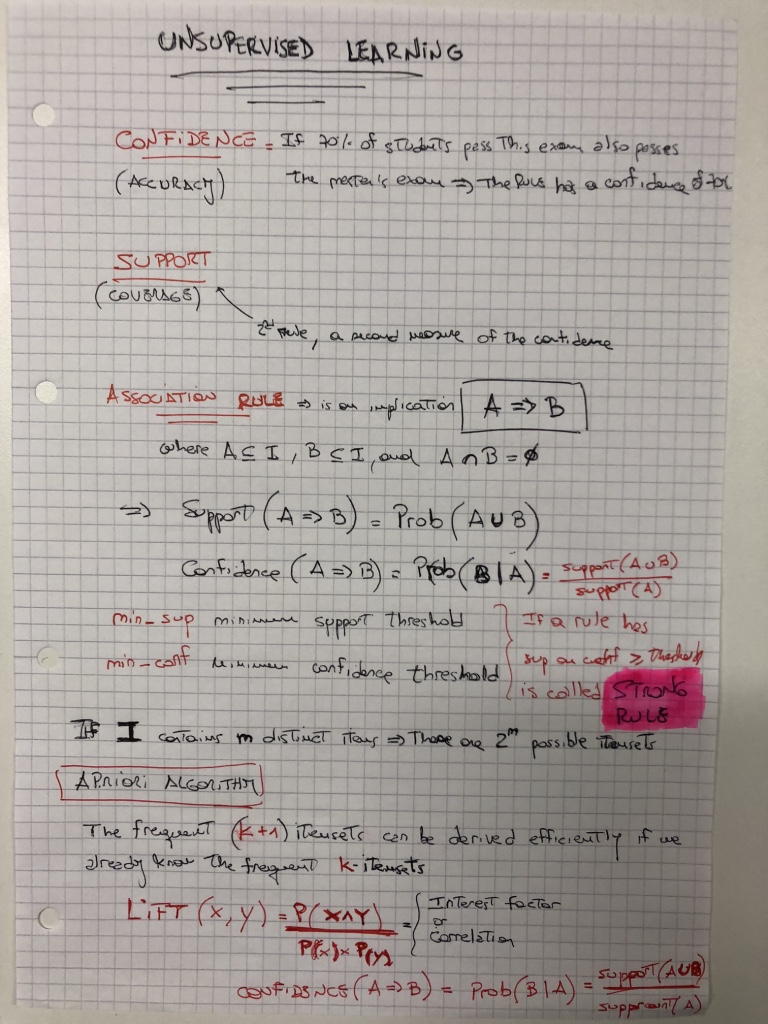 UNSUPERVISED LEARNING
CONFIDENCE = If 70% of students pass This exam also posses
(ACCURACY) The master's exam => The Rule has a confidence of 70%
SUPPORT
(COVERAGE)
2nd rule, a second measure of the confidence
ASSOCIATION RULE => is an implication A => B
where A ⊆ I, B ⊆ I, and A ∩ B = ∅
=> Support (A => B) = Prob (A ∪ B)
Confidence (A => B) = Prob (B | A) = support (A ∪ B) / support (A)
min_sup minimum spport threshold } If a rule has
min_conf minimum confidence threshold sup and conf ≥ threshold
is called STRONG
RULE
If I contains m distinct items => There are 2^m possible itemsets
APRIORI ALGORITHM
The frequent (k+1) itemsets can be derived efficiently if we
already know The frequent k-itemsets
LIFT (X, Y) = P(X ∧ Y) / P(X) × P(Y) = { Interest factor
or
Correlation
CONFIDENCE (A => B) = Prob (B | A) = support (A ∪ B) / (A)